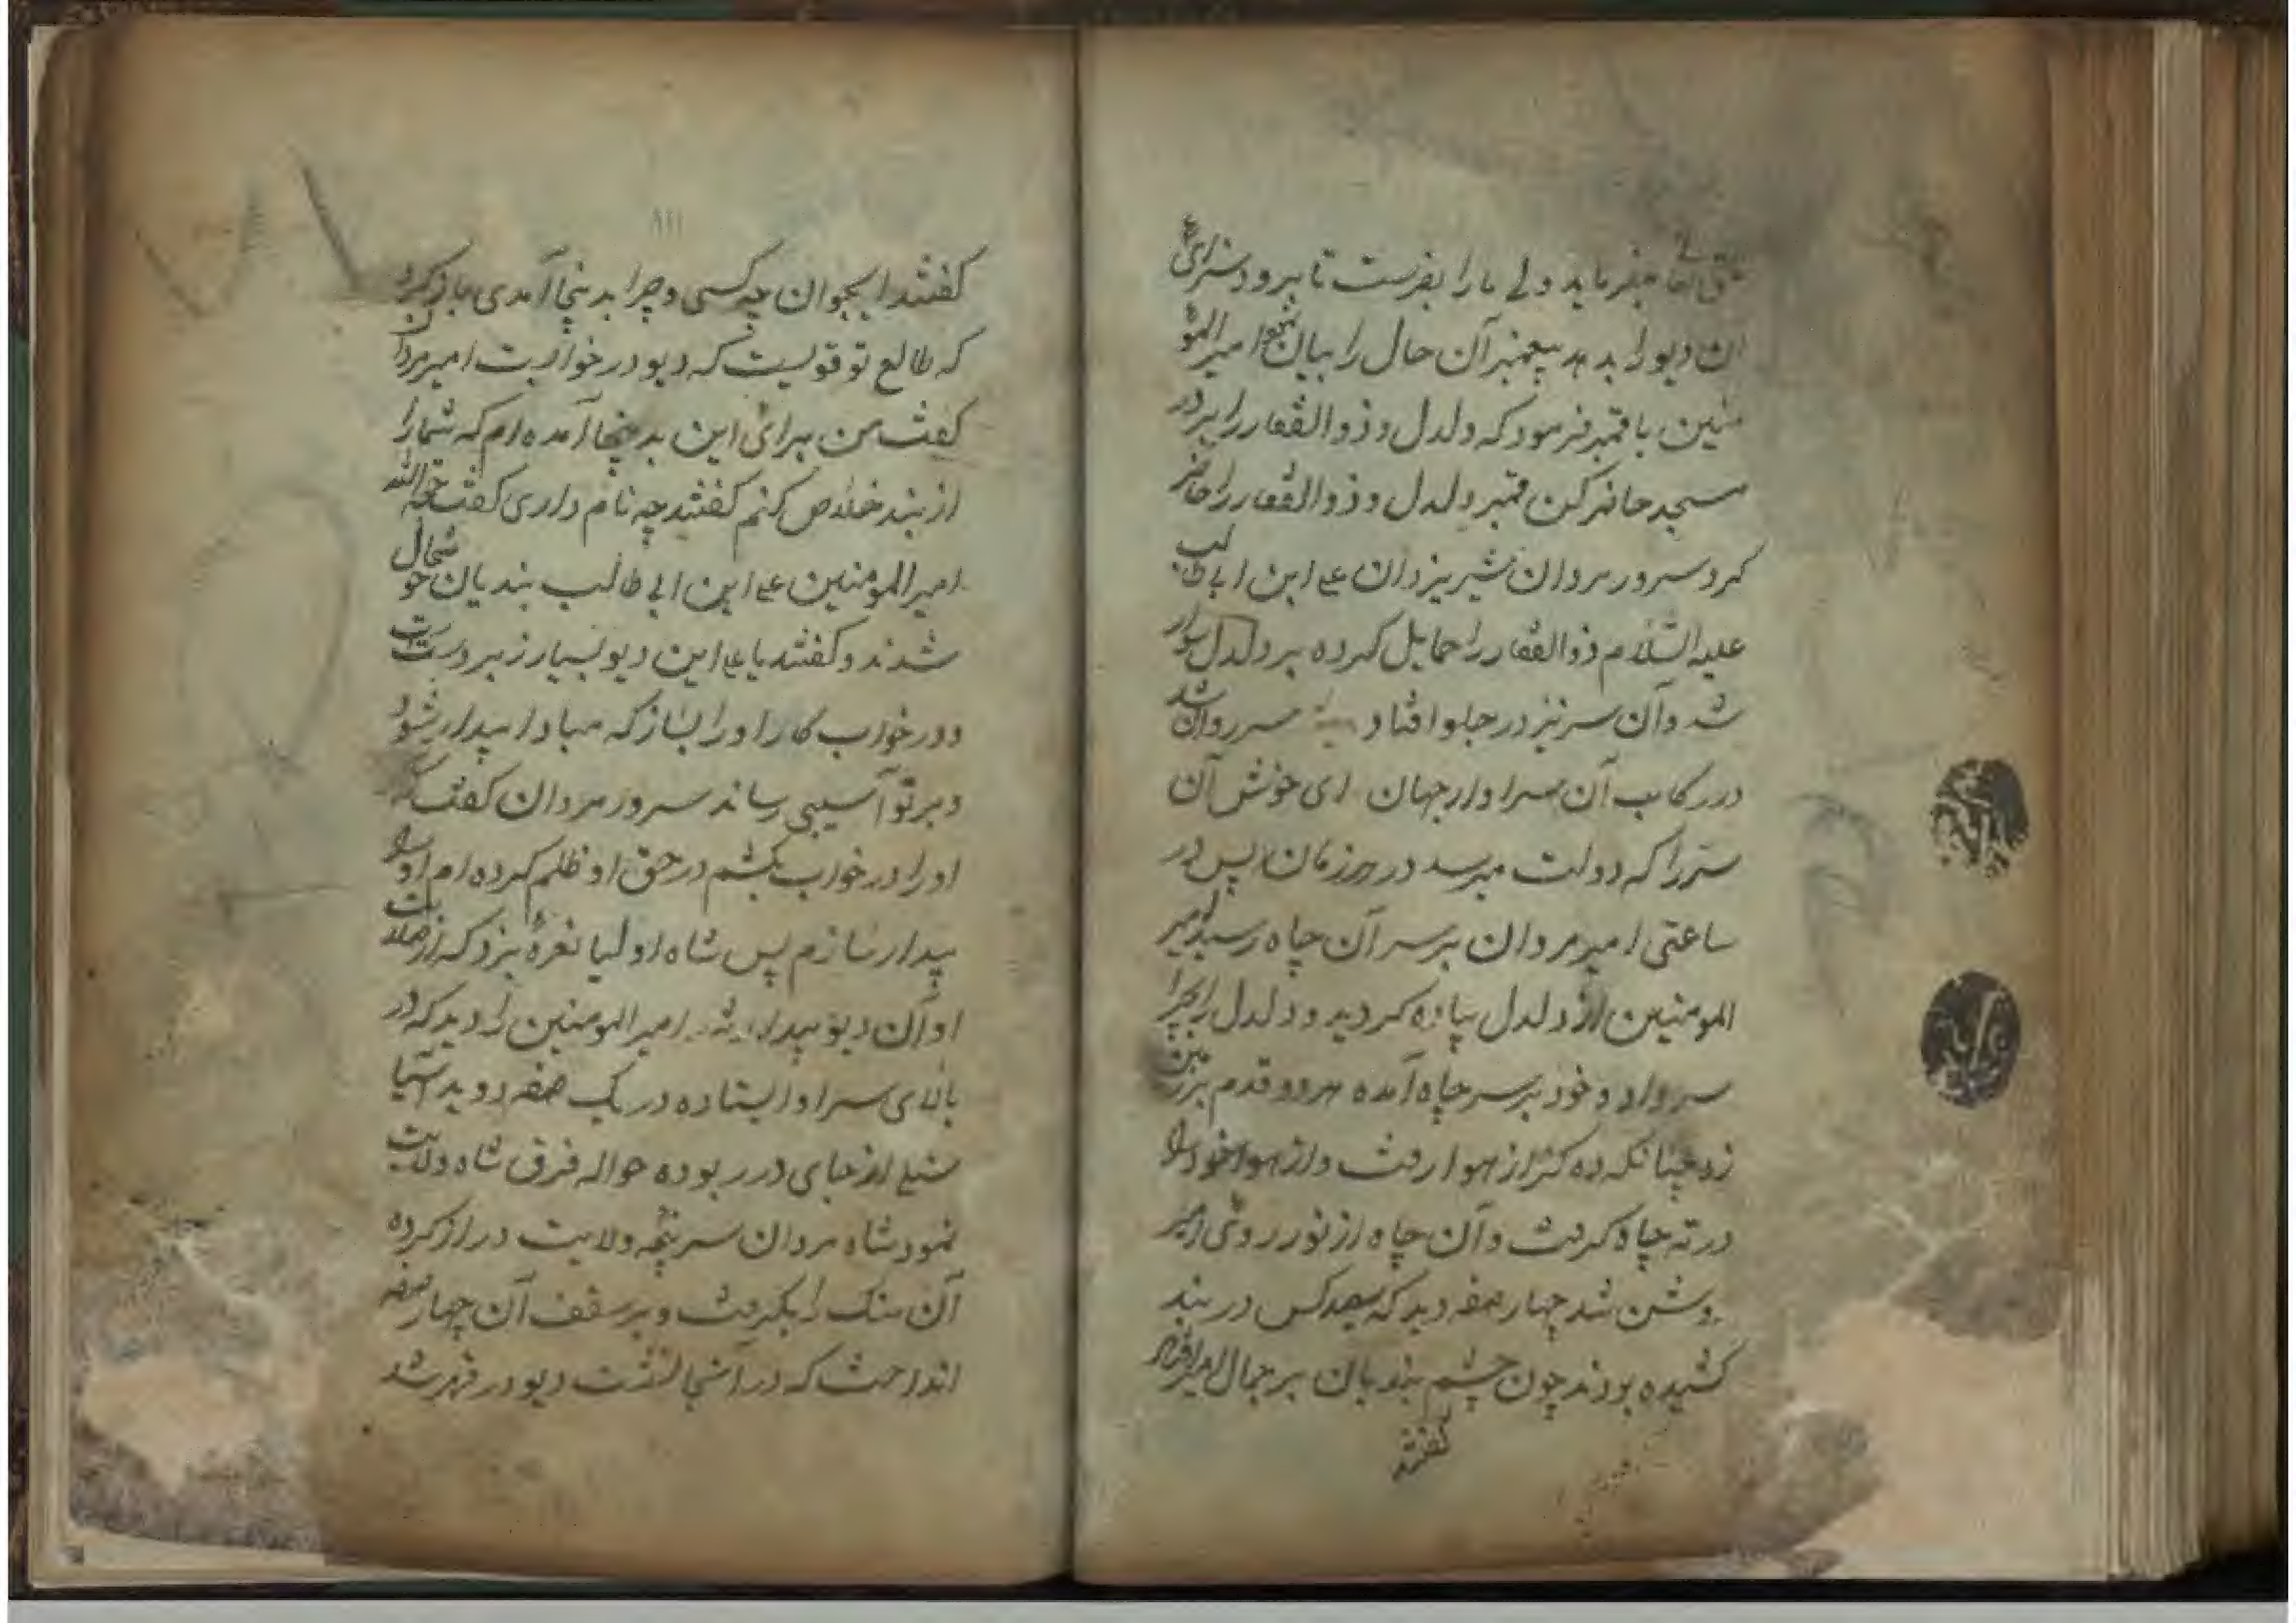 میفرماید ولی ما را بفرست تا برود سزای
ان دیو را بدهد پیغمبر آن حال را بیان امیر المو
منین با قمبر فرمود که دلدل و ذوالفقار را بر در
مسجد حاضر کن قمبر دلدل و ذوالفقار را حاضر
کرد سرور مردان شیر یزدان علی ابن ابی طالب
علیه السّلام ذوالفقار را حمایل کرده بر دلدل سوار
شد و آن سر نیز در جلو افتاد سر روان شد
در رکاب آن سزاوار جهان ای خوش آن
سرّرا که دولت میرسد در هر زمان پس در
ساعتی امیر مردان بر سر آن چاه رسید امیر
المومنین از دلدل پیاده کردید و دلدل را بچرا
سر داد و خود بر سر چاه آمده هر دو قدم بر زمین
زد چنانکه ده کز از هوا رفت و از هوا خود را
در ته چاه کرفت و آن چاه از نور روی امیر
روشن شد چهار صفه دید که سیصد کس در بند
کشیده بودند چون چشم بندیان بر جمال امیر افتاد
کفتند
۱۱۱
کفتند ایجوان چه کسی و چرا بدینجا آمدی باز کرد
که طالع تو قویست که دیو در خوابست امیر مردان
کفت من برای این بدینجا آمده ام که شما را
از بند خلاص کنم کفتند چه نام داری کفت
امیر المومنین علی ابن ابی طالب بندیان خوشحال
شدند و کفتند یا علی این دیو بسیار زبردست است
در خواب کار او را بساز که مبادا بیدار شود
و بر تو آسیبی رساند سرور مردان کفت که
او را در خواب بکشم در حق او ظلم کرده ام او را
بیدار سازم پس شاه اولیا نعرهٔ بزد که از صلابت
او آن دیو بیدار شد امیر المومنین را دید که در
بالای سر او ایستاده در یک صفه دوید آسیا
سنکی از جای در ربوده حواله فرق شاه ولایت
نمود شاه مردان سر پنجه ولایت دراز کرده
آن سنک را بکرفت و بر سقف آن چهار صفه
انداخت که در آنجا نشست دیو در قهر شد